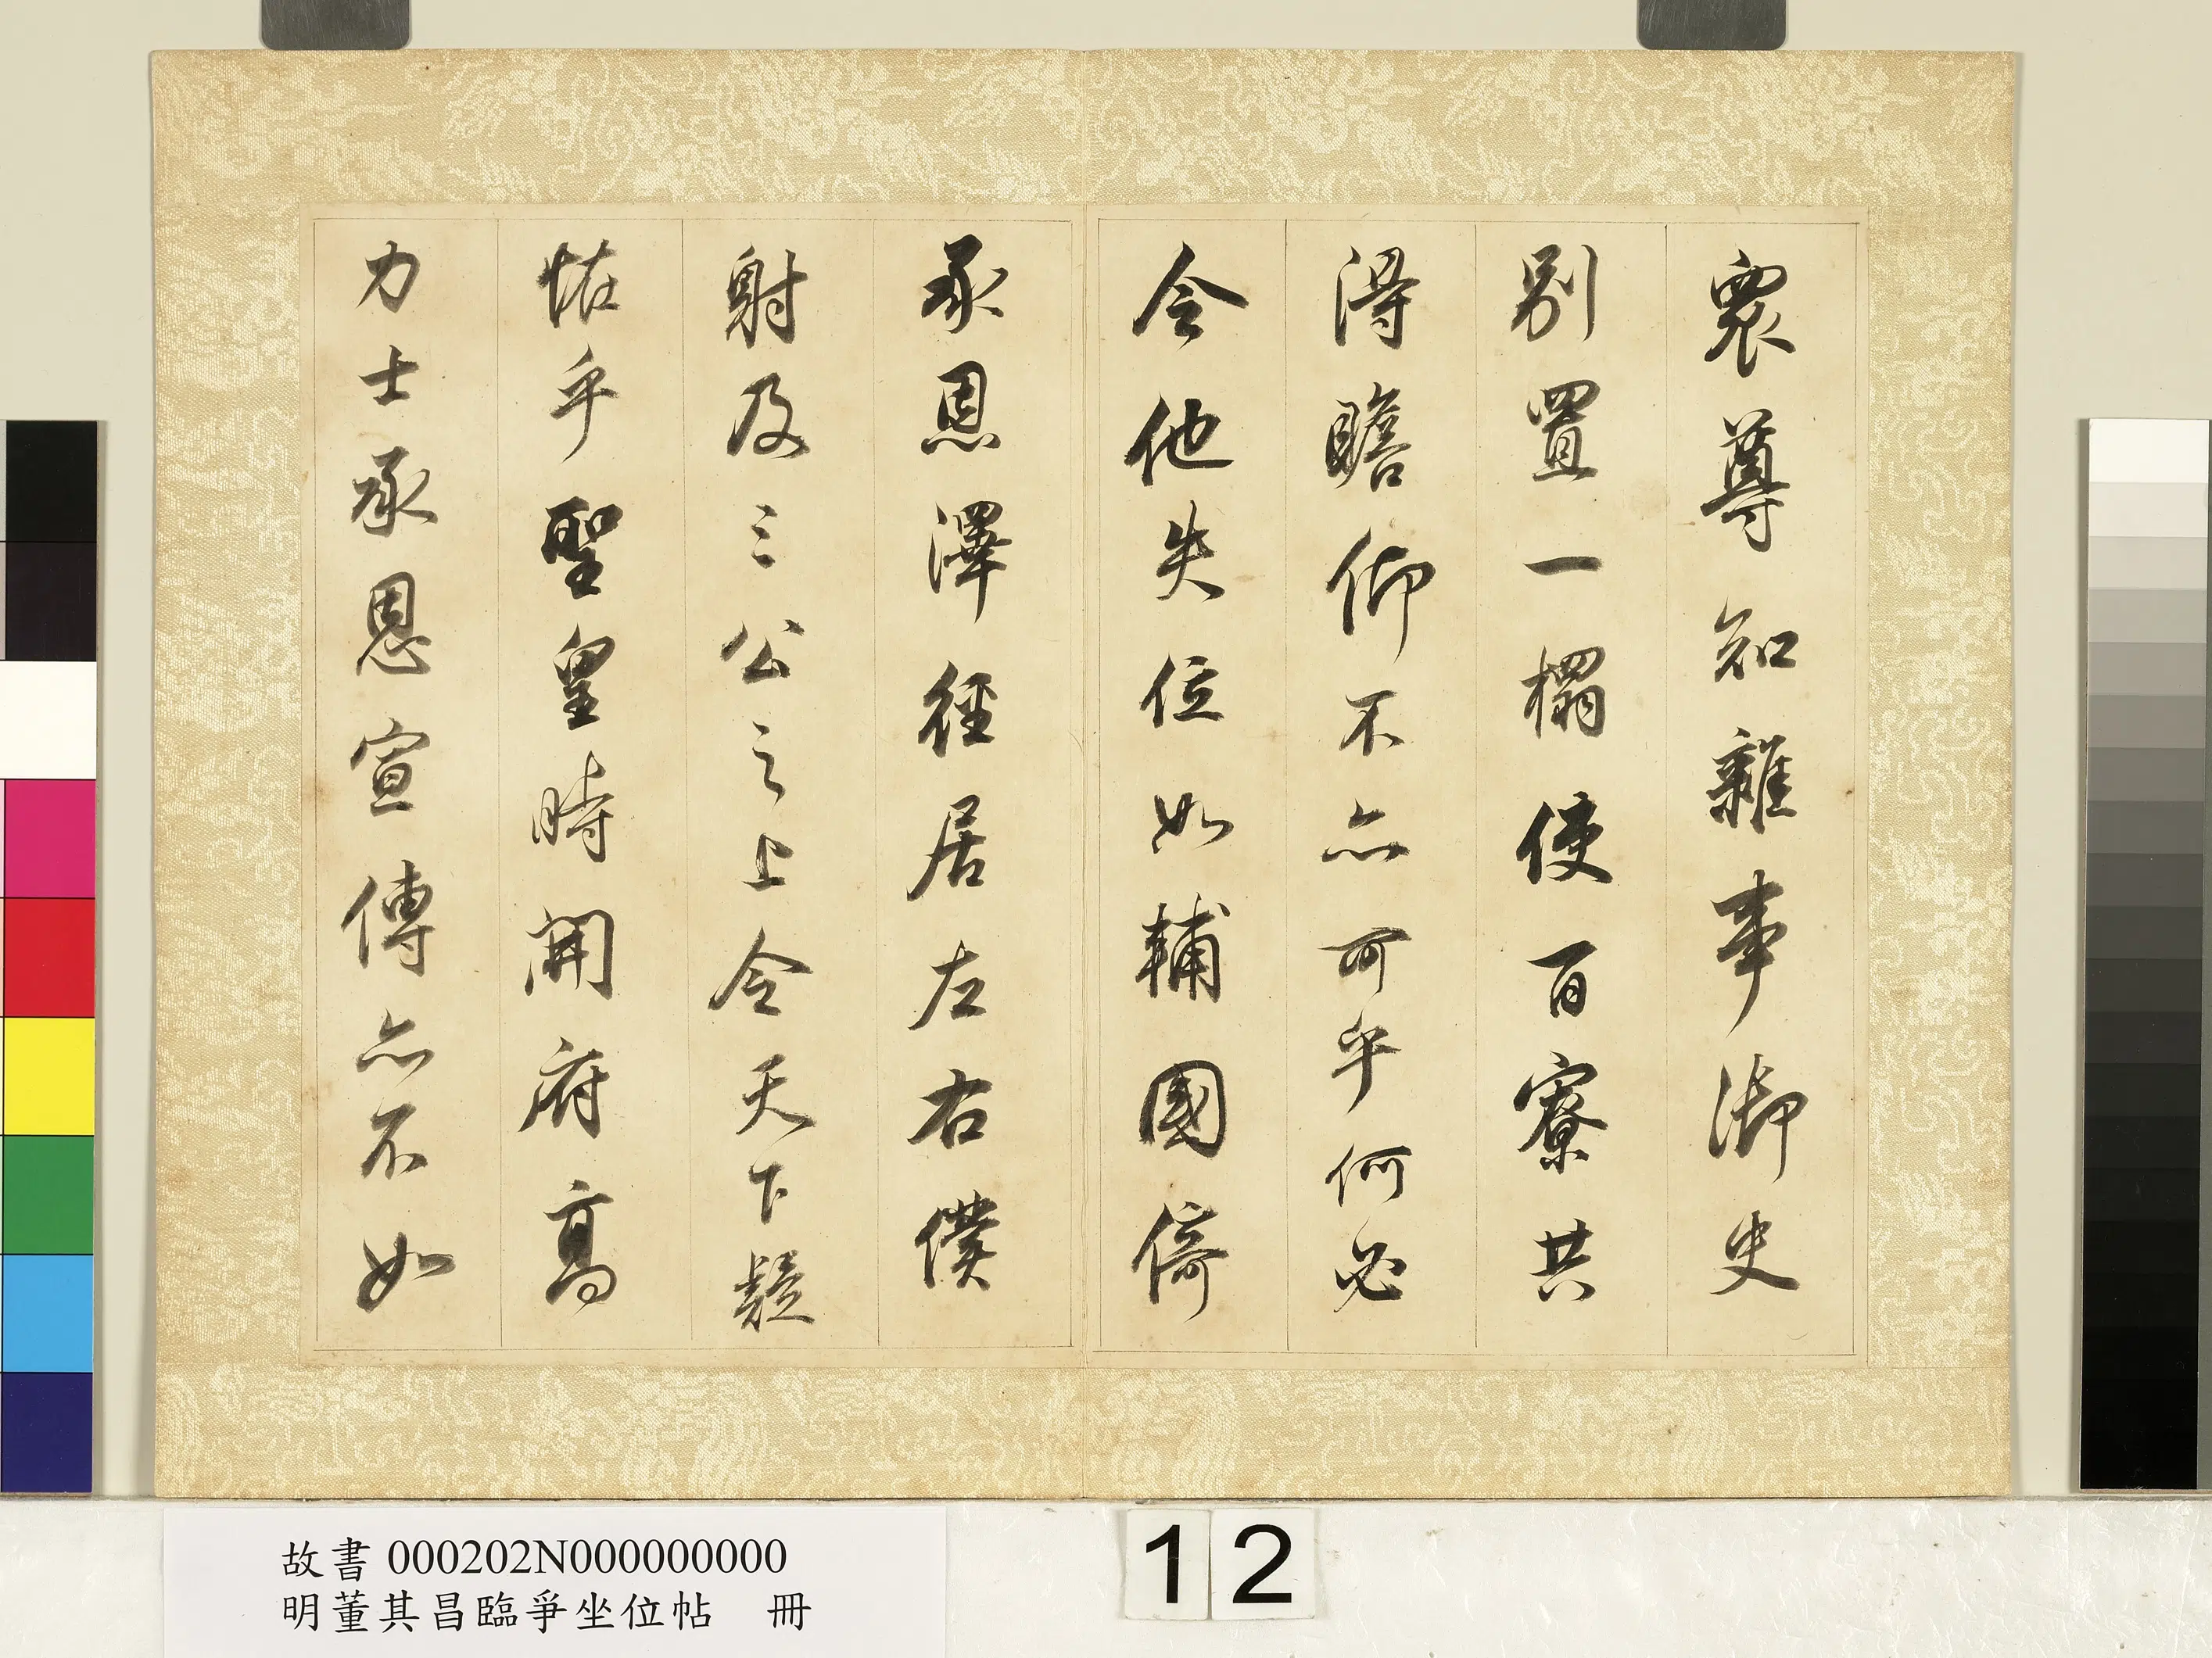 衆尊知雜事御史
別置一榻使百寮共
得瞻仰不亦可乎何必
令他失位如輔國倚
承恩澤徑居左右僕
射及三公之上令天下疑
怪乎聖皇時開府高
力士承恩宣傳亦不如
故書000202N000000000
明董其昌臨爭坐位帖 冊
12